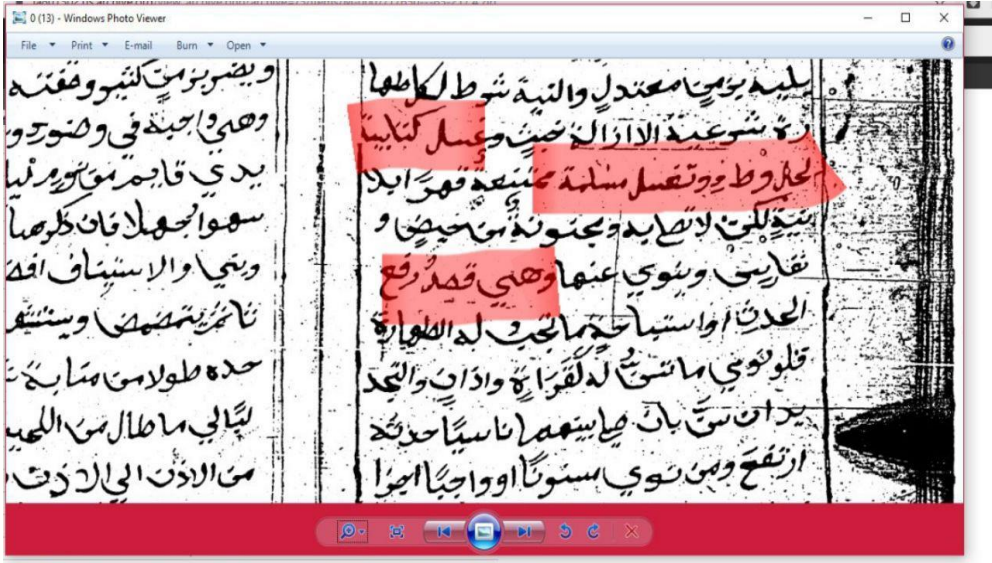 0 (13) - Windows Photo Viewer
File Print E-mail Burn Open
يليه بزمن معتدل والنية شرط لكل طها
رة شرعية الا ازالة خبث وغسل كتابية
لحل وطء وتغسل مسلمة ممتنعة قهرا بلا
نية لكن لا تصلي به ومجنونة من حيض و
نفاس وينوي عنها وهي قصد رفع
الحدث او استباحة ما تجب له الطهارة
فلو نوي ما تسن له كقراءة واذان والتجد
يد ان سن بان صلي بينهما ناسيا حدثه
ارتفع ومن نوي مسنونا او واجبا اجزا
كثير وصفته
وهي واجبة في وضوء و
يدي قايم من نوم ليل
فان ذكرها
والاستيناف افض
ثم يتمضمض ويستنشق
حده طولا من منابت
ما طال من اللحية
من الاذن الي الاذن